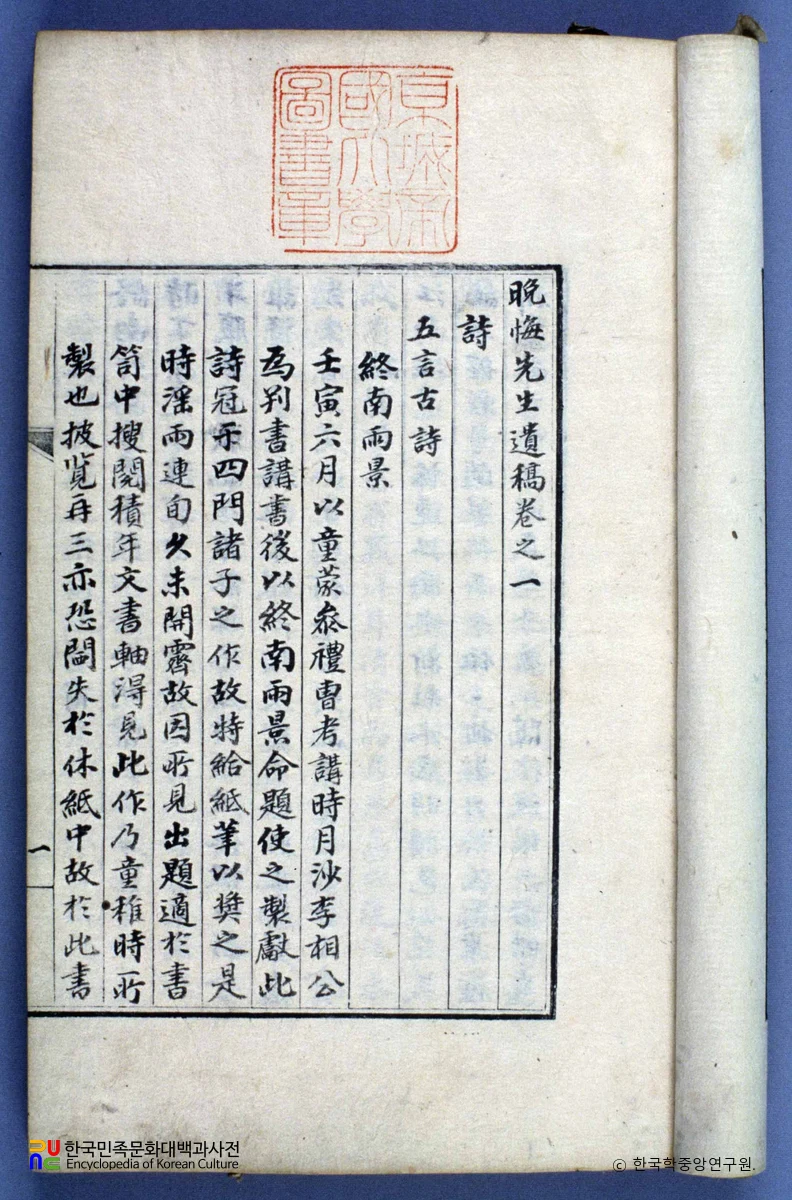 京城帝
國大學
圖書章
晩悔先生遺稿卷之一
詩
五言古詩
終南雨景
壬寅六月以童蒙叅禮曹考講時月沙李相公
爲判書講書後以終南雨景命題使之製獻此
詩冠于四門諸子之作故特給紙筆以奬之是
時滛雨連旬久未開霽故因所見出題適於書
笥中搜閱積年文書軸得見此作乃童稚時所
製也披覽再三亦恐閪失於休紙中故於此書
一
한국민족문화대백과사전
Encyclopedia of Korean Culture
ⓒ 한국학중앙연구원.